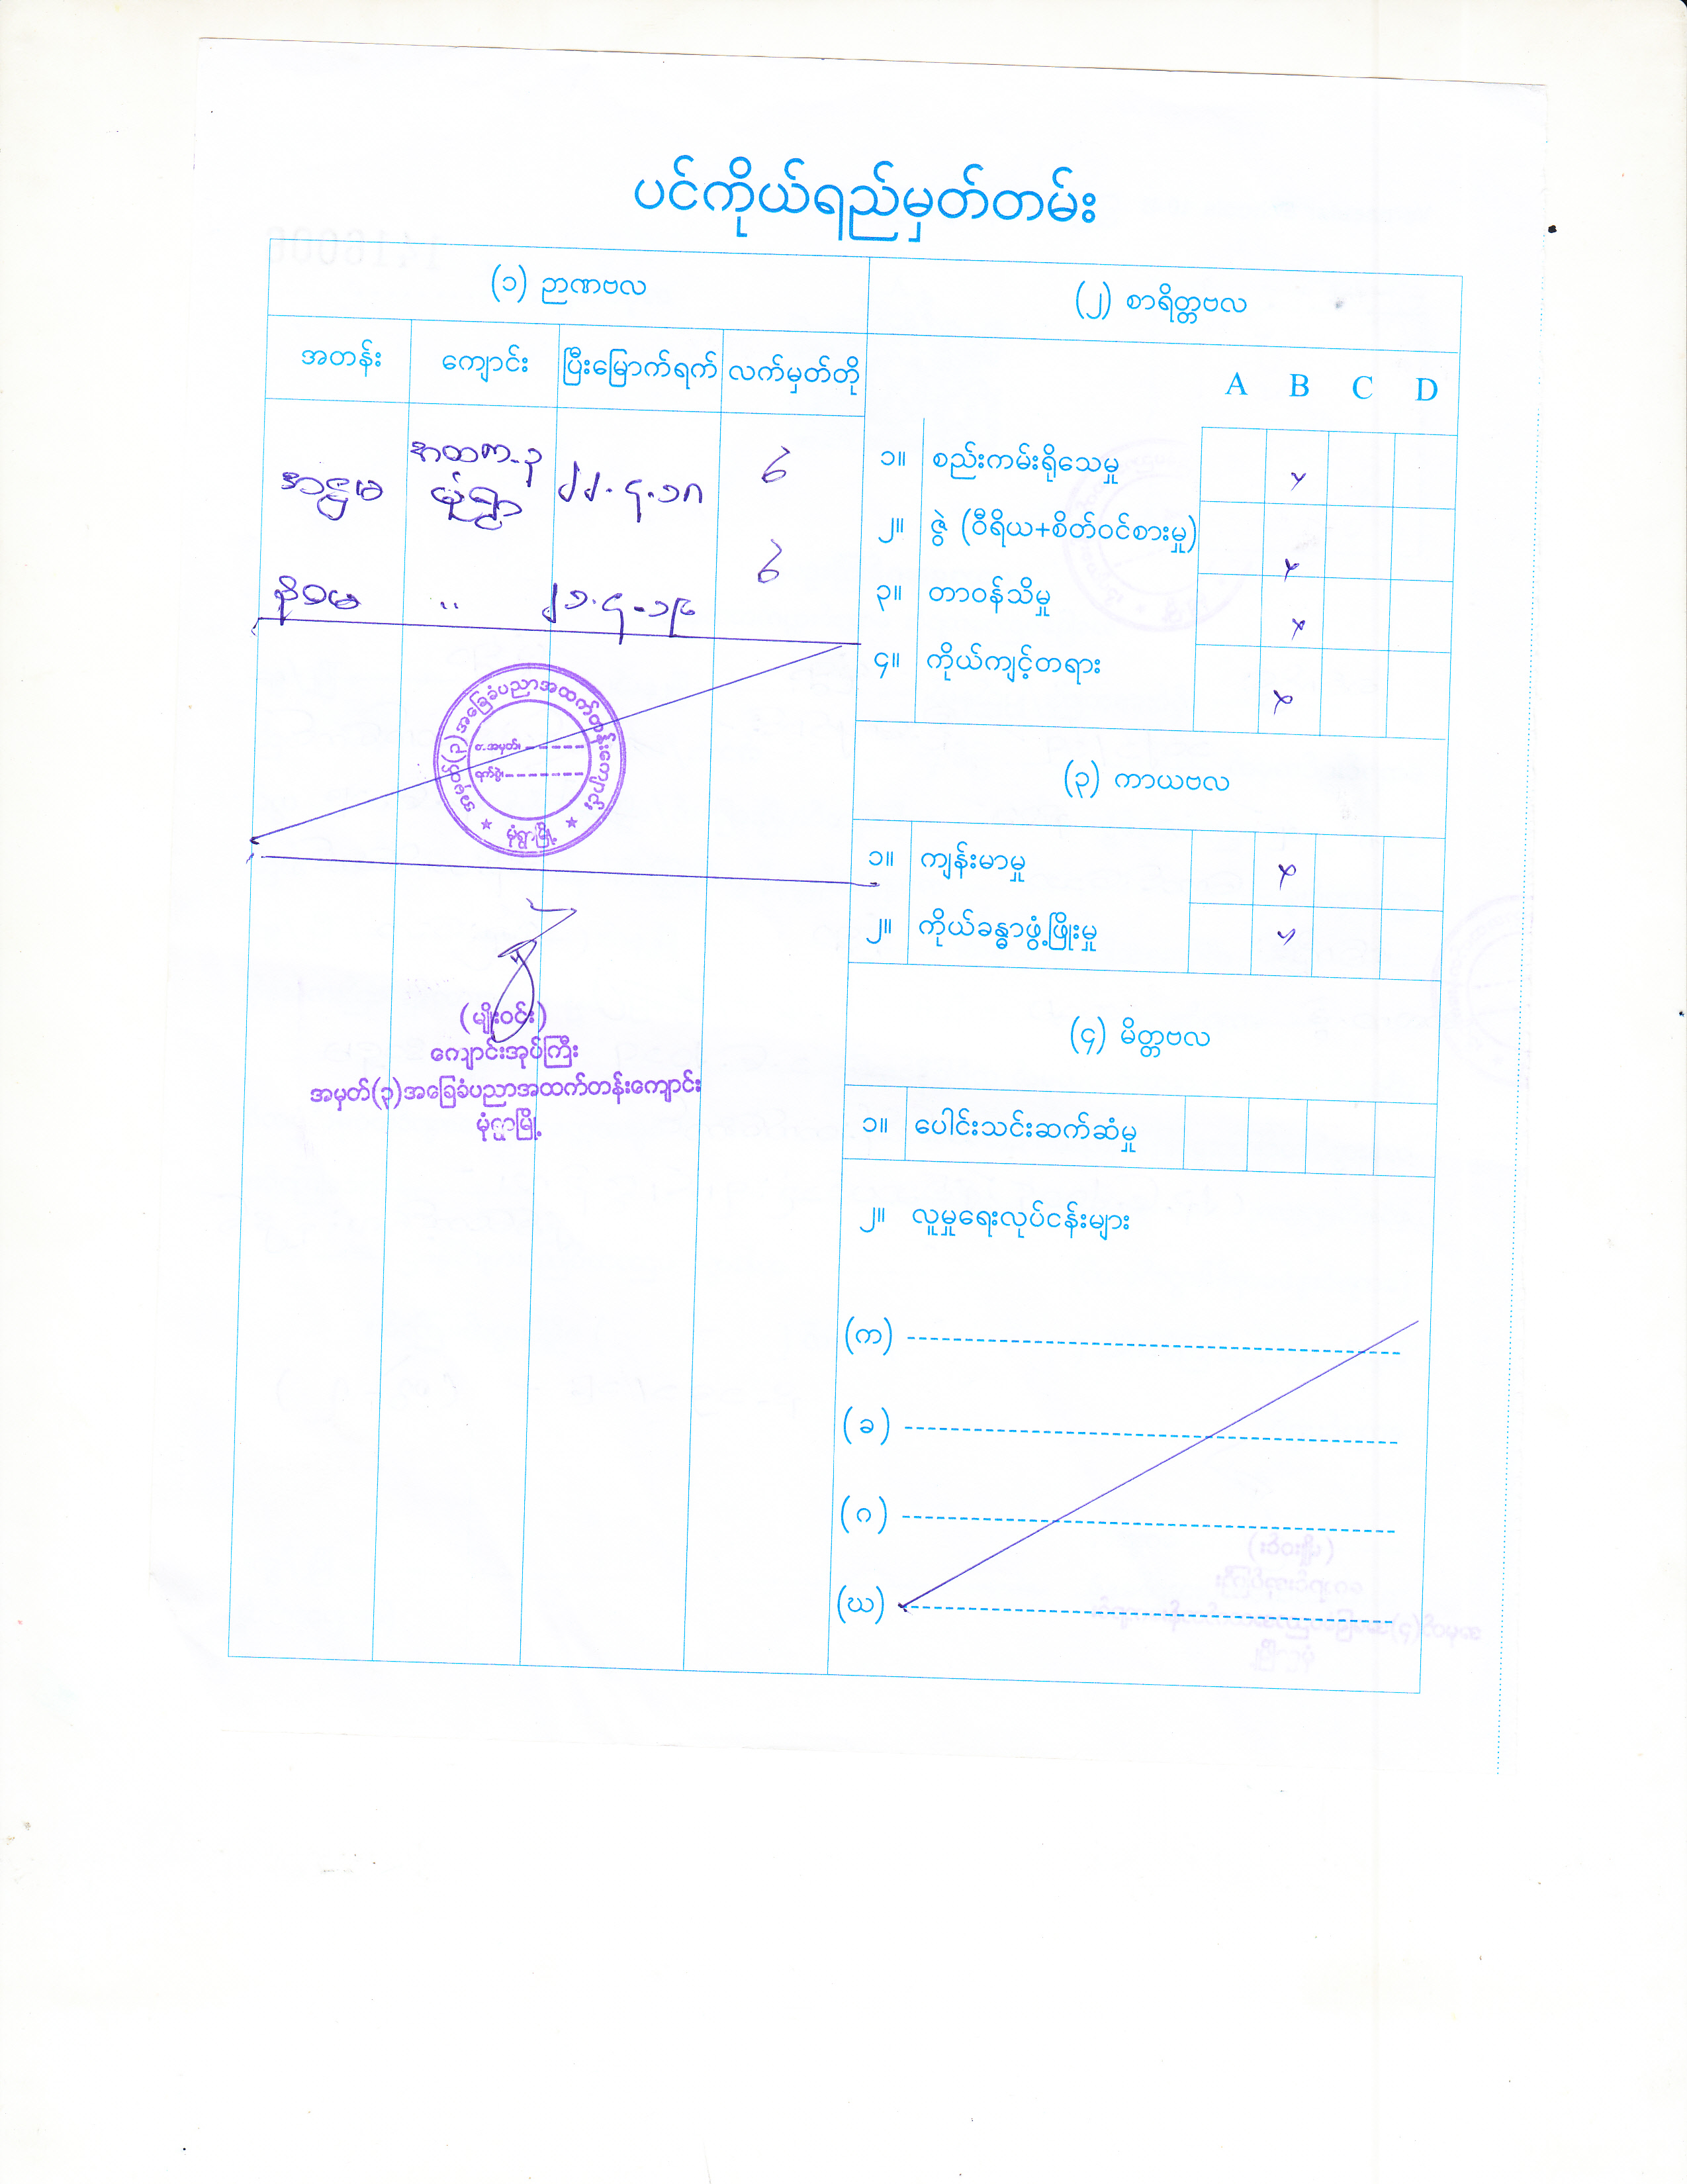 ပင်ကိုယ်ရည်မှတ်တမ်း
(၁) ဉာဏဗလ
အတန်း ကျောင်း ပြီးမြောက်ရက် လက်မှတ်တို
အဋ္ဌမ အထက-၃ မုံရွာ ၂၂.၄.၁၈
နဝမ " ၂၁.၄-၁၉
အမှတ်(၃)အခြေခံပညာအထက်တန်းကျောင်း
စာအမှတ်၊ ------
ရက်စွဲ၊ --------
မုံရွာမြို့
(မျိုးဝင်း)
ကျောင်းအုပ်ကြီး
အမှတ်(၃)အခြေခံပညာအထက်တန်းကျောင်း
မုံရွာမြို့
(၂) စာရိတ္တဗလ
A B C D
၁။ စည်းကမ်းရိုသေမှု
၂။ ဇွဲ (ဝီရိယ+စိတ်ဝင်စားမှု)
၃။ တာဝန်သိမှု
၄။ ကိုယ်ကျင့်တရား
(၃) ကာယဗလ
၁။ ကျန်းမာမှု
၂။ ကိုယ်ခန္ဓာဖွံ့ဖြိုးမှု
(၄) မိတ္တဗလ
၁။ ပေါင်းသင်းဆက်ဆံမှု
၂။ လူမှုရေးလုပ်ငန်းများ
(က)
(ခ)
(ဂ)
(ဃ)